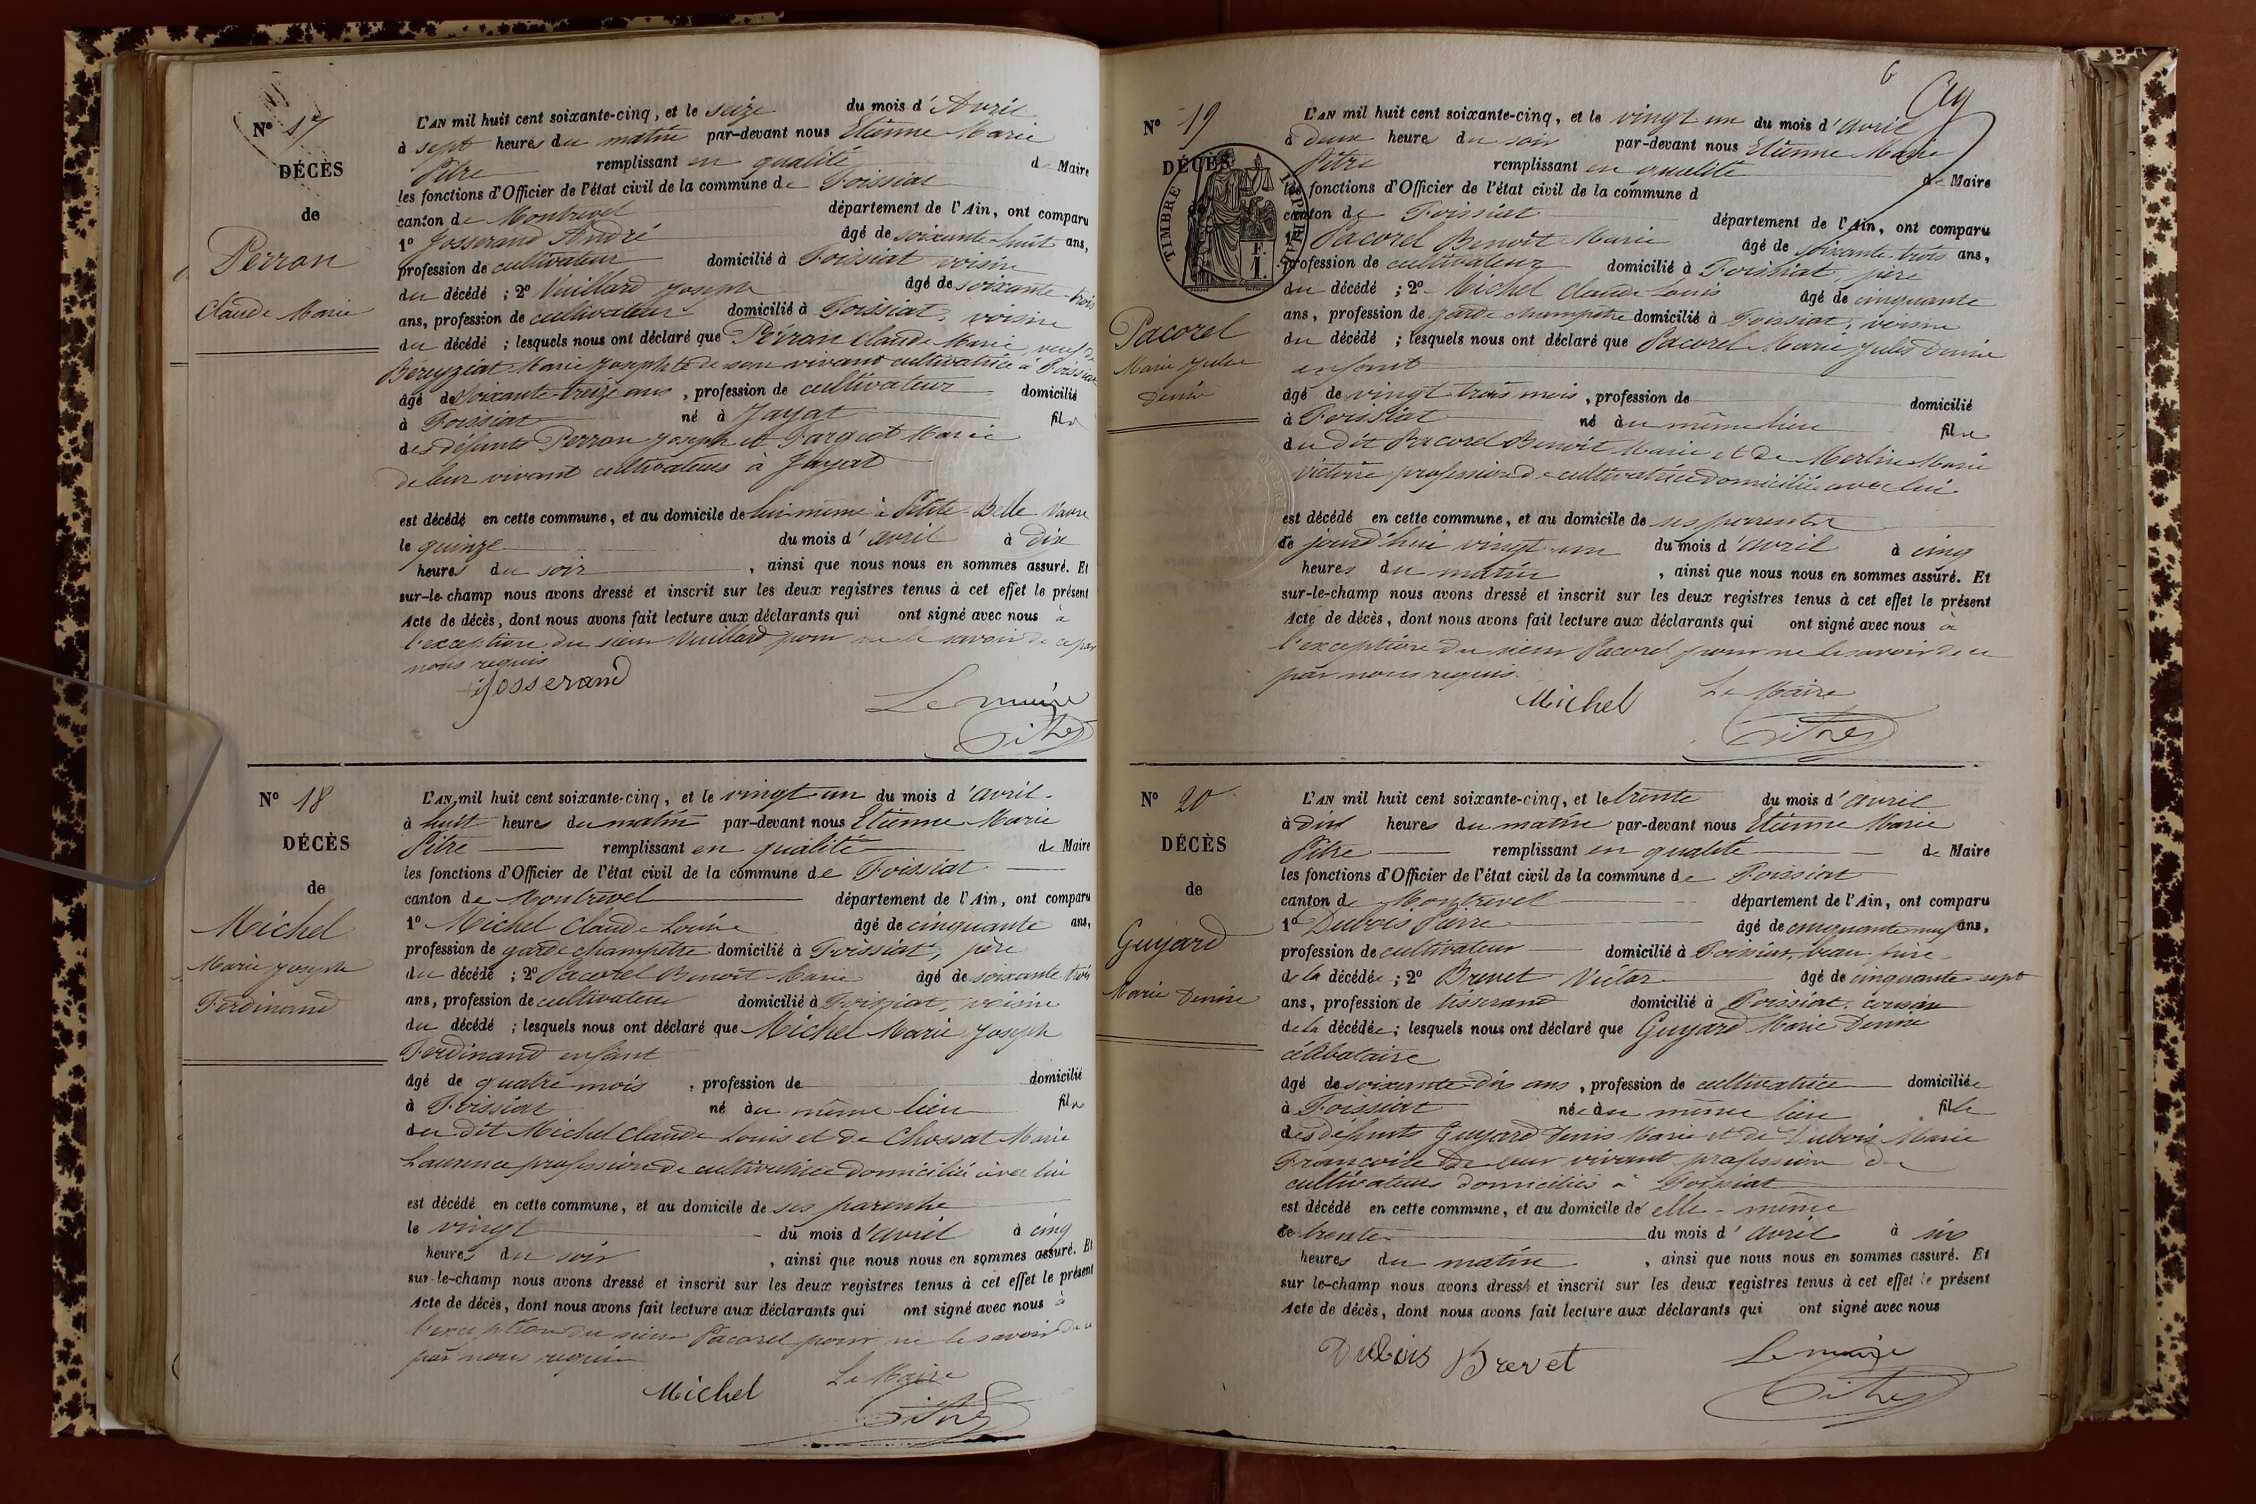 N° 17
DÉCÈS
de
Perran
Claude Marie
L'AN mil huit cent soixante-cinq, et le seize du mois d'Avril
à sept heures du matin par-devant nous Etienne Marie
Pitre remplissant en qualité de Maire
les fonctions d'Officier de l'état civil de la commune de Foissiat
canton de Montrevel département de l'Ain, ont comparu
1° Josserand André âgé de soixante-huit ans,
profession de cultivateur domicilié à Foissiat voisin
du décédé ; 2° Vuillard Joseph âgé de soixante-trois
ans, profession de cultivateur domicilié à Foissiat, voisin
du décédé ; lesquels nous ont déclaré que Perran Claude Marie, veuf de
Béreyziat Marie Josephte de son vivant cultivatrice à Foissiat
âgé de soixante-treize ans, profession de cultivateur domicilié
à Foissiat né à Jayat fils
des défunts Perran Joseph et Marie
de leur vivant cultivateurs à Jayat
est décédé en cette commune, et au domicile de lui-même à Petite Belle Vavre
le quinze du mois d'avril à dix
heures du soir, ainsi que nous nous en sommes assuré. Et
sur-le-champ nous avons dressé et inscrit sur les deux registres tenus à cet effet le présent
Acte de décès, dont nous avons fait lecture aux déclarants qui ont signé avec nous à
l'exception du sieur Vuillard pour ne le savoir de ce par
nous requis
Josserand
Le maire
Pitre
N° 18
DÉCÈS
de
Michel
Marie Joseph
Ferdinand
L'AN mil huit cent soixante-cinq, et le vingt-un du mois d'avril
à huit heures du matin par-devant nous Etienne Marie
Pitre remplissant en qualité de Maire
les fonctions d'Officier de l'état civil de la commune de Foissiat
canton de Montrevel département de l'Ain, ont comparu
1° Michel Claude Louis âgé de cinquante ans,
profession de garde champêtre domicilié à Foissiat, père
du décédé ; 2° Pacorel Benoit Marie âgé de soixante trois
ans, profession de cultivateur domicilié à Foissiat, voisin
du décédé ; lesquels nous ont déclaré que Michel Marie Joseph
Ferdinand enfant
âgé de quatre mois, profession de domicilié
à Foissiat né au même lieu fils
du dit Michel Claude Louis et de Chossat Marie
Laurence profession de cultivatrice domiciliée avec lui
est décédé en cette commune, et au domicile de ses parents
le vingt du mois d'avril à cinq
heures du soir, ainsi que nous nous en sommes assuré. Et
sur-le-champ nous avons dressé et inscrit sur les deux registres tenus à cet effet le présent
Acte de décès, dont nous avons fait lecture aux déclarants qui ont signé avec nous à
l'exception du sieur Pacorel pour ne le savoir de ce
par nous requis
Michel
Le Maire
Pitre
6
N° 19
DÉCÈS
TIMBRE IMPERIAL
Pacorel
Marie Jules
Denis
L'AN mil huit cent soixante-cinq, et le vingt un du mois d'avril
à deux heures du soir par-devant nous Etienne Marie
Pitre remplissant en qualité de Maire
les fonctions d'Officier de l'état civil de la commune d
canton de Foissiat département de l'Ain, ont comparu
1° Pacorel Benoit Marie âgé de soixante-trois ans,
profession de cultivateur domicilié à Foissiat père
du décédé ; 2° Michel Claude Louis âgé de cinquante
ans, profession de garde champêtre domicilié à Foissiat, voisin
du décédé ; lesquels nous ont déclaré que Pacorel Marie Jules Denis
enfant
âgé de vingt trois mois, profession de domicilié
à Foissiat né au même lieu fils
du dit Pacorel Benoit Marie et de Merlin Marie
Victoire profession de cultivatrice domiciliée avec lui
est décédé en cette commune, et au domicile de ses parents
ce jourd'hui vingt-un du mois d'avril à cinq
heures du matin, ainsi que nous nous en sommes assuré. Et
sur-le-champ nous avons dressé et inscrit sur les deux registres tenus à cet effet le présent
Acte de décès, dont nous avons fait lecture aux déclarants qui ont signé avec nous à
l'exception du sieur Pacorel pour ne le savoir de ce
par nous requis
Michel
Le Maire
Pitre
N° 20
DÉCÈS
de
Guyard
Marie Denise
L'AN mil huit cent soixante-cinq, et le trente du mois d'avril
à dix heures du matin par-devant nous Etienne Marie
Pitre remplissant en qualité de Maire
les fonctions d'Officier de l'état civil de la commune de Foissiat
canton de Montrevel département de l'Ain, ont comparu
1° Dubois Pierre âgé de cinquante neuf ans,
profession de cultivateur domicilié à Foissiat, beau frère
de la décédée ; 2° Brevet Victor âgé de cinquante-sept
ans, profession de tisserand domicilié à Foissiat, cousin
de la décédée ; lesquels nous ont déclaré que Guyard Marie Denise
célibataire
âgé de soixante-dix ans, profession de cultivatrice domiciliée
à Foissiat née au même lieu fille
des défunts Guyard Denis Marie et de Dubois Marie
Françoise de leur vivant profession de
cultivateurs domiciliés à Foissiat
est décédé en cette commune, et au domicile de elle-même
ce trente du mois d'avril à six
heures du matin, ainsi que nous nous en sommes assuré. Et
sur le-champ nous avons dressé et inscrit sur les deux registres tenus à cet effet le présent
Acte de décès, dont nous avons fait lecture aux déclarants qui ont signé avec nous
Dubois Brevet
Le maire
Pitre